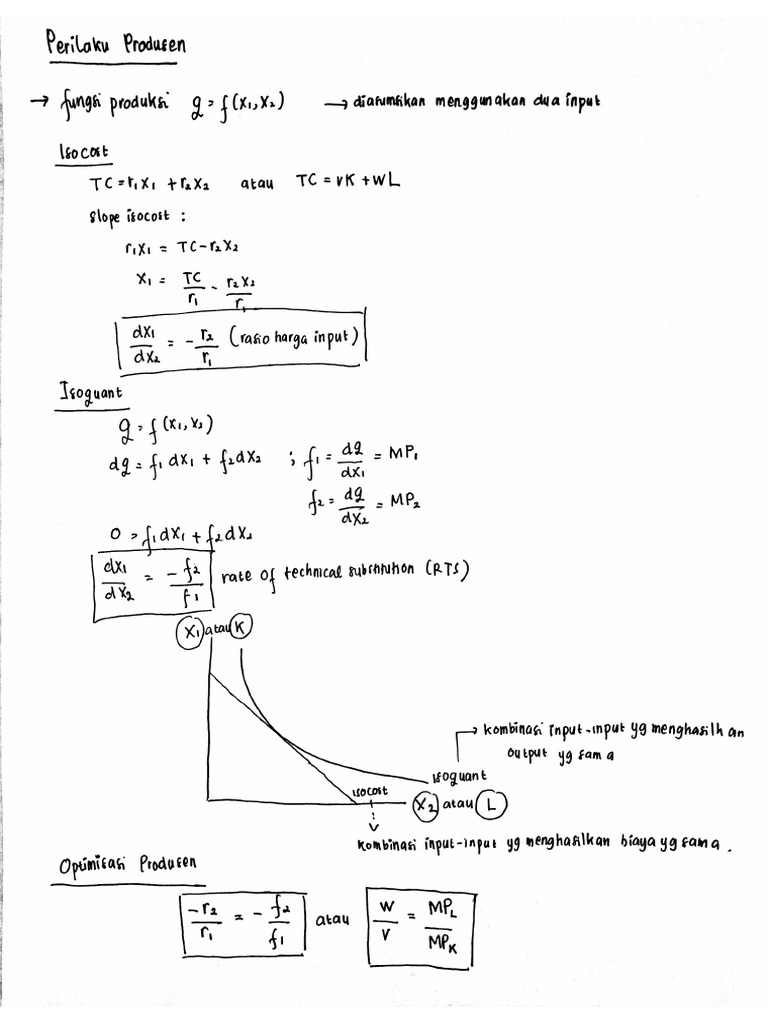 Perilaku Produsen
→ fungsi produksi q = f(x₁, x₂) → diasumsikan menggunakan dua input
Isocost
TC = r₁x₁ + r₂x₂ atau TC = vK + wL
slope isocost :
r₁x₁ = TC - r₂x₂
x₁ = TC/r₁ - r₂x₂/r₁
dx₁/dx₂ = - r₂/r₁ (rasio harga input)
Isoquant
q = f(x₁, x₂)
dq = f₁dx₁ + f₂dx₂ ; f₁ = dq/dx₁ = MP₁
f₂ = dq/dx₂ = MP₂
0 = f₁dx₁ + f₂dx₂
dx₁/dx₂ = -f₂/f₁ rate of technical substitution (RTS)
x₁ atau K
→ kombinasi input-input yg menghasilkan
output yg sama
isoquant
isocost
x₂ atau L
kombinasi input-input yg menghasilkan biaya yg sama.
Optimisasi Produsen
-r₂/r₁ = - f₂/f₁ atau w/v = MP_L/MP_K